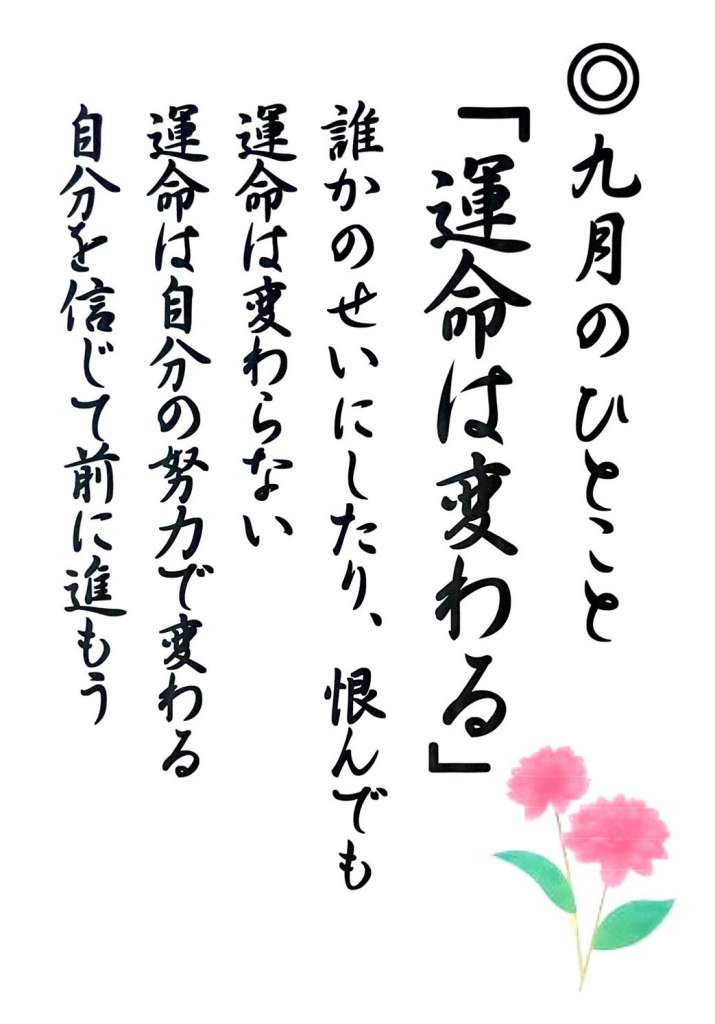 ◎九月のひとこと
「運命は変わる」
誰かのせいにしたり、恨んでも
運命は変わらない
運命は自分の努力で変わる
自分を信じて前に進もう